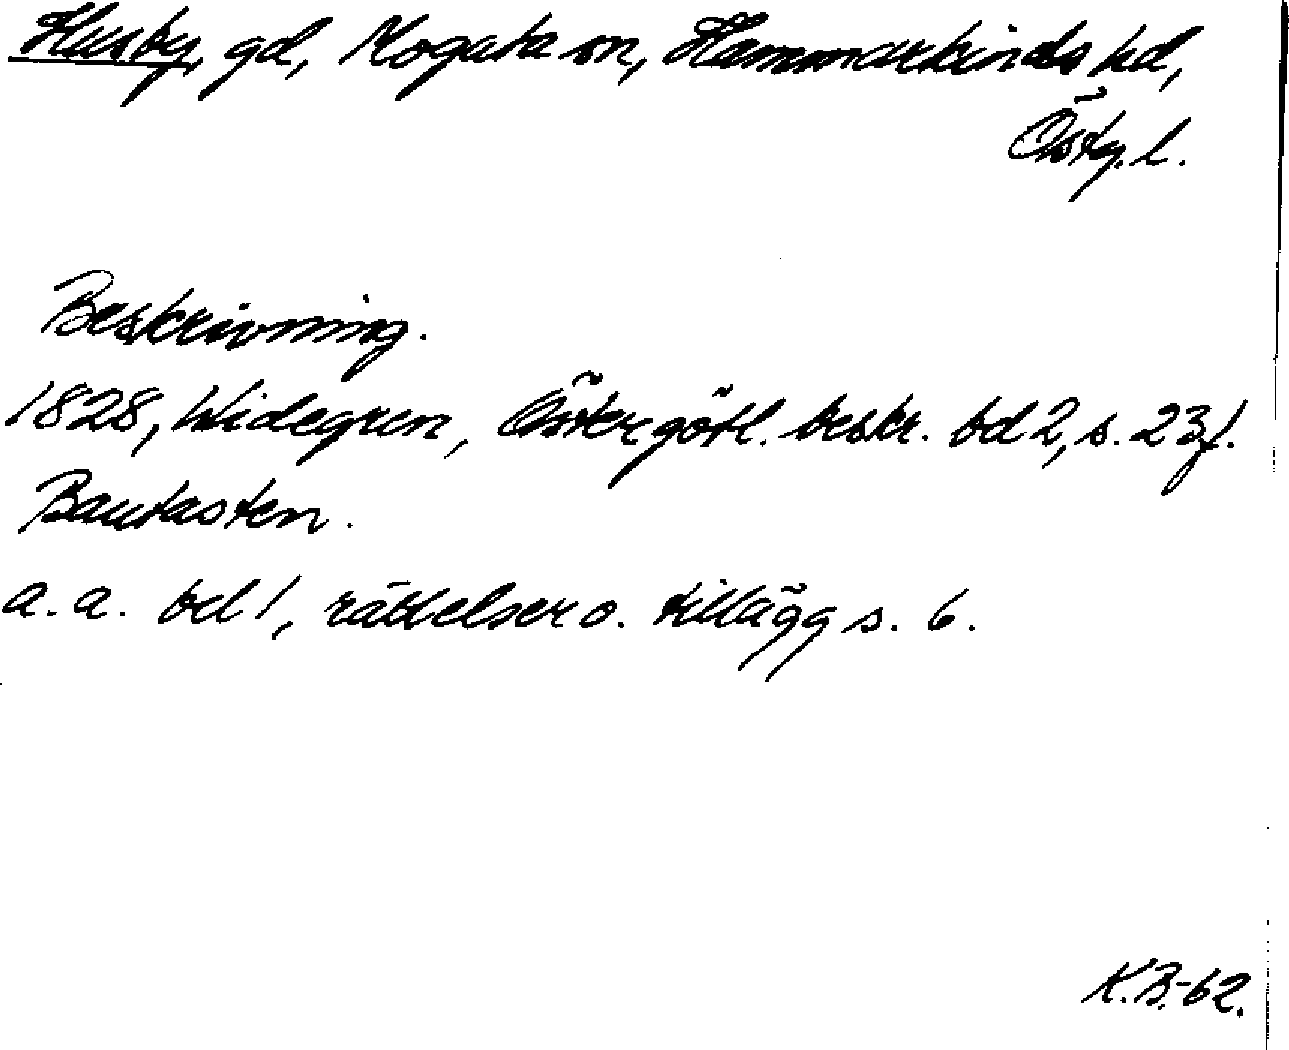 Husby, gd, Mogata sn, Hammarkinds hd,
Östg. l.
Beskrivning.
1828, Widegren, Östergötl. beskr. bd 2, s. 23f.
Bautasten.
a. a. bd 1, rättelser o. tillägg s. 6.
K.B.-62.